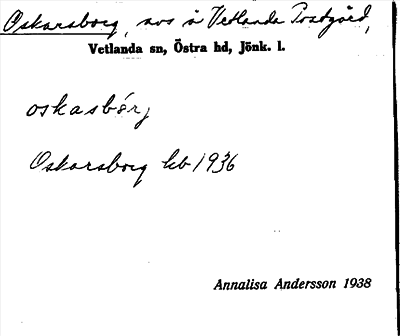 Oskarsborg, avs å Vetlanda Postgård,
Vetlanda sn, Östra hd, Jönk. l.
oskasbörj
Oskarsborg kb 1936
Annalisa Andersson 1938